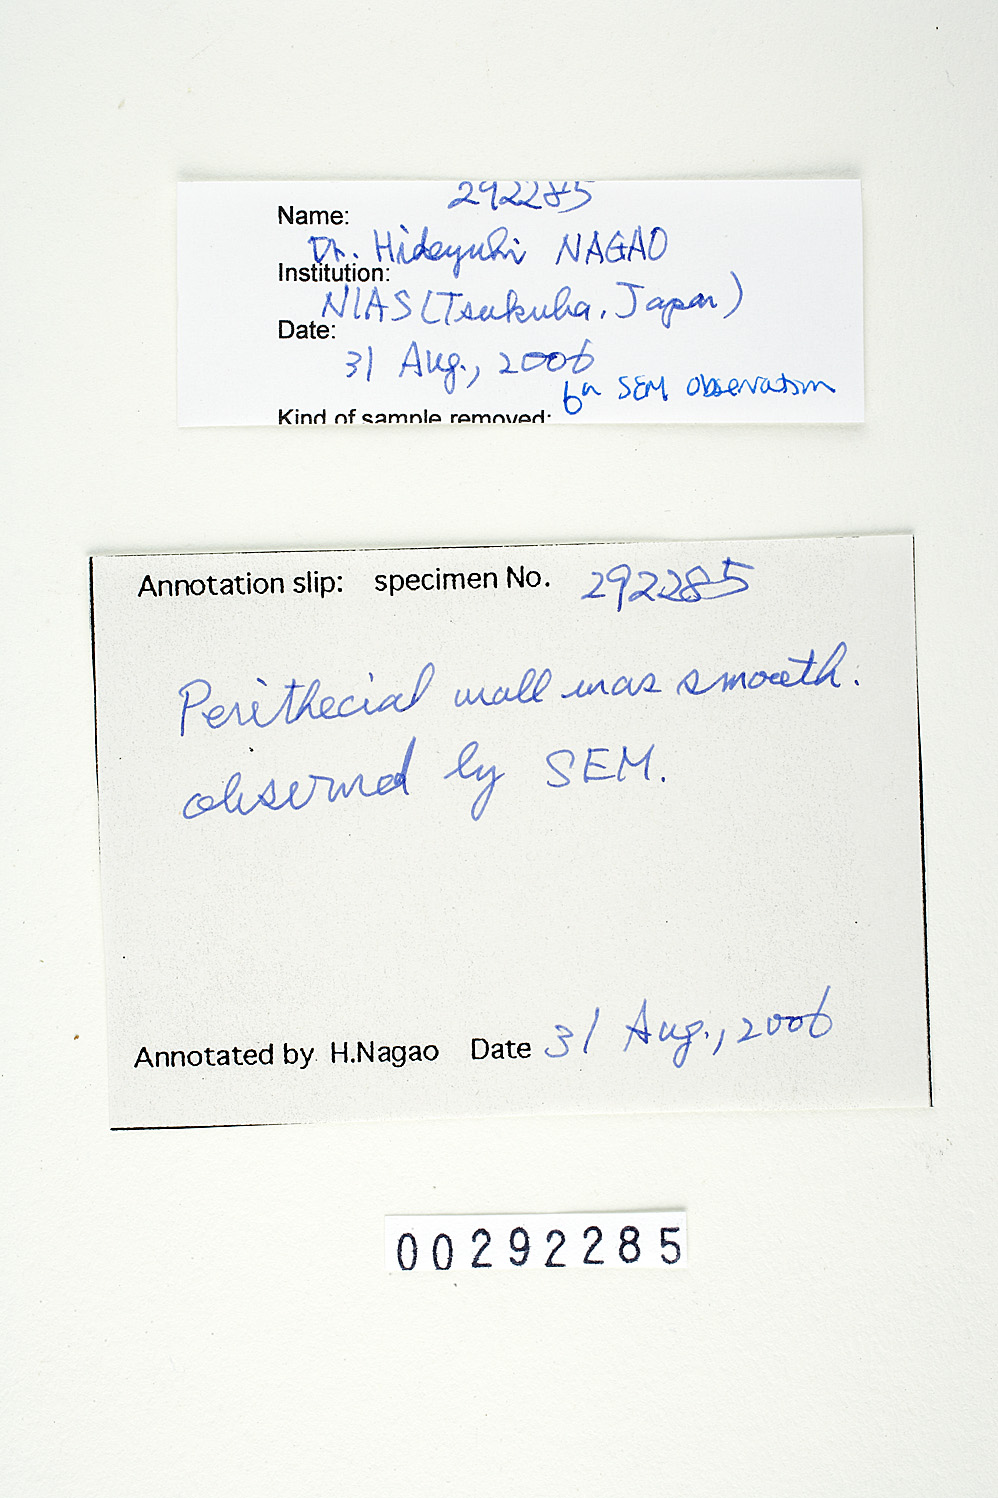 292285
Name:
Dr. Hideyuki NAGAO
Institution:
NIAS (Tsukuba, Japan)
Date:
31 Aug., 2006
SEM observation
Kind of sample removed:
Annotation slip: specimen No. 292285
Perithecial wall was smooth.
observed by SEM.
Annotated by H.Nagao Date 31 Aug., 2006
00292285